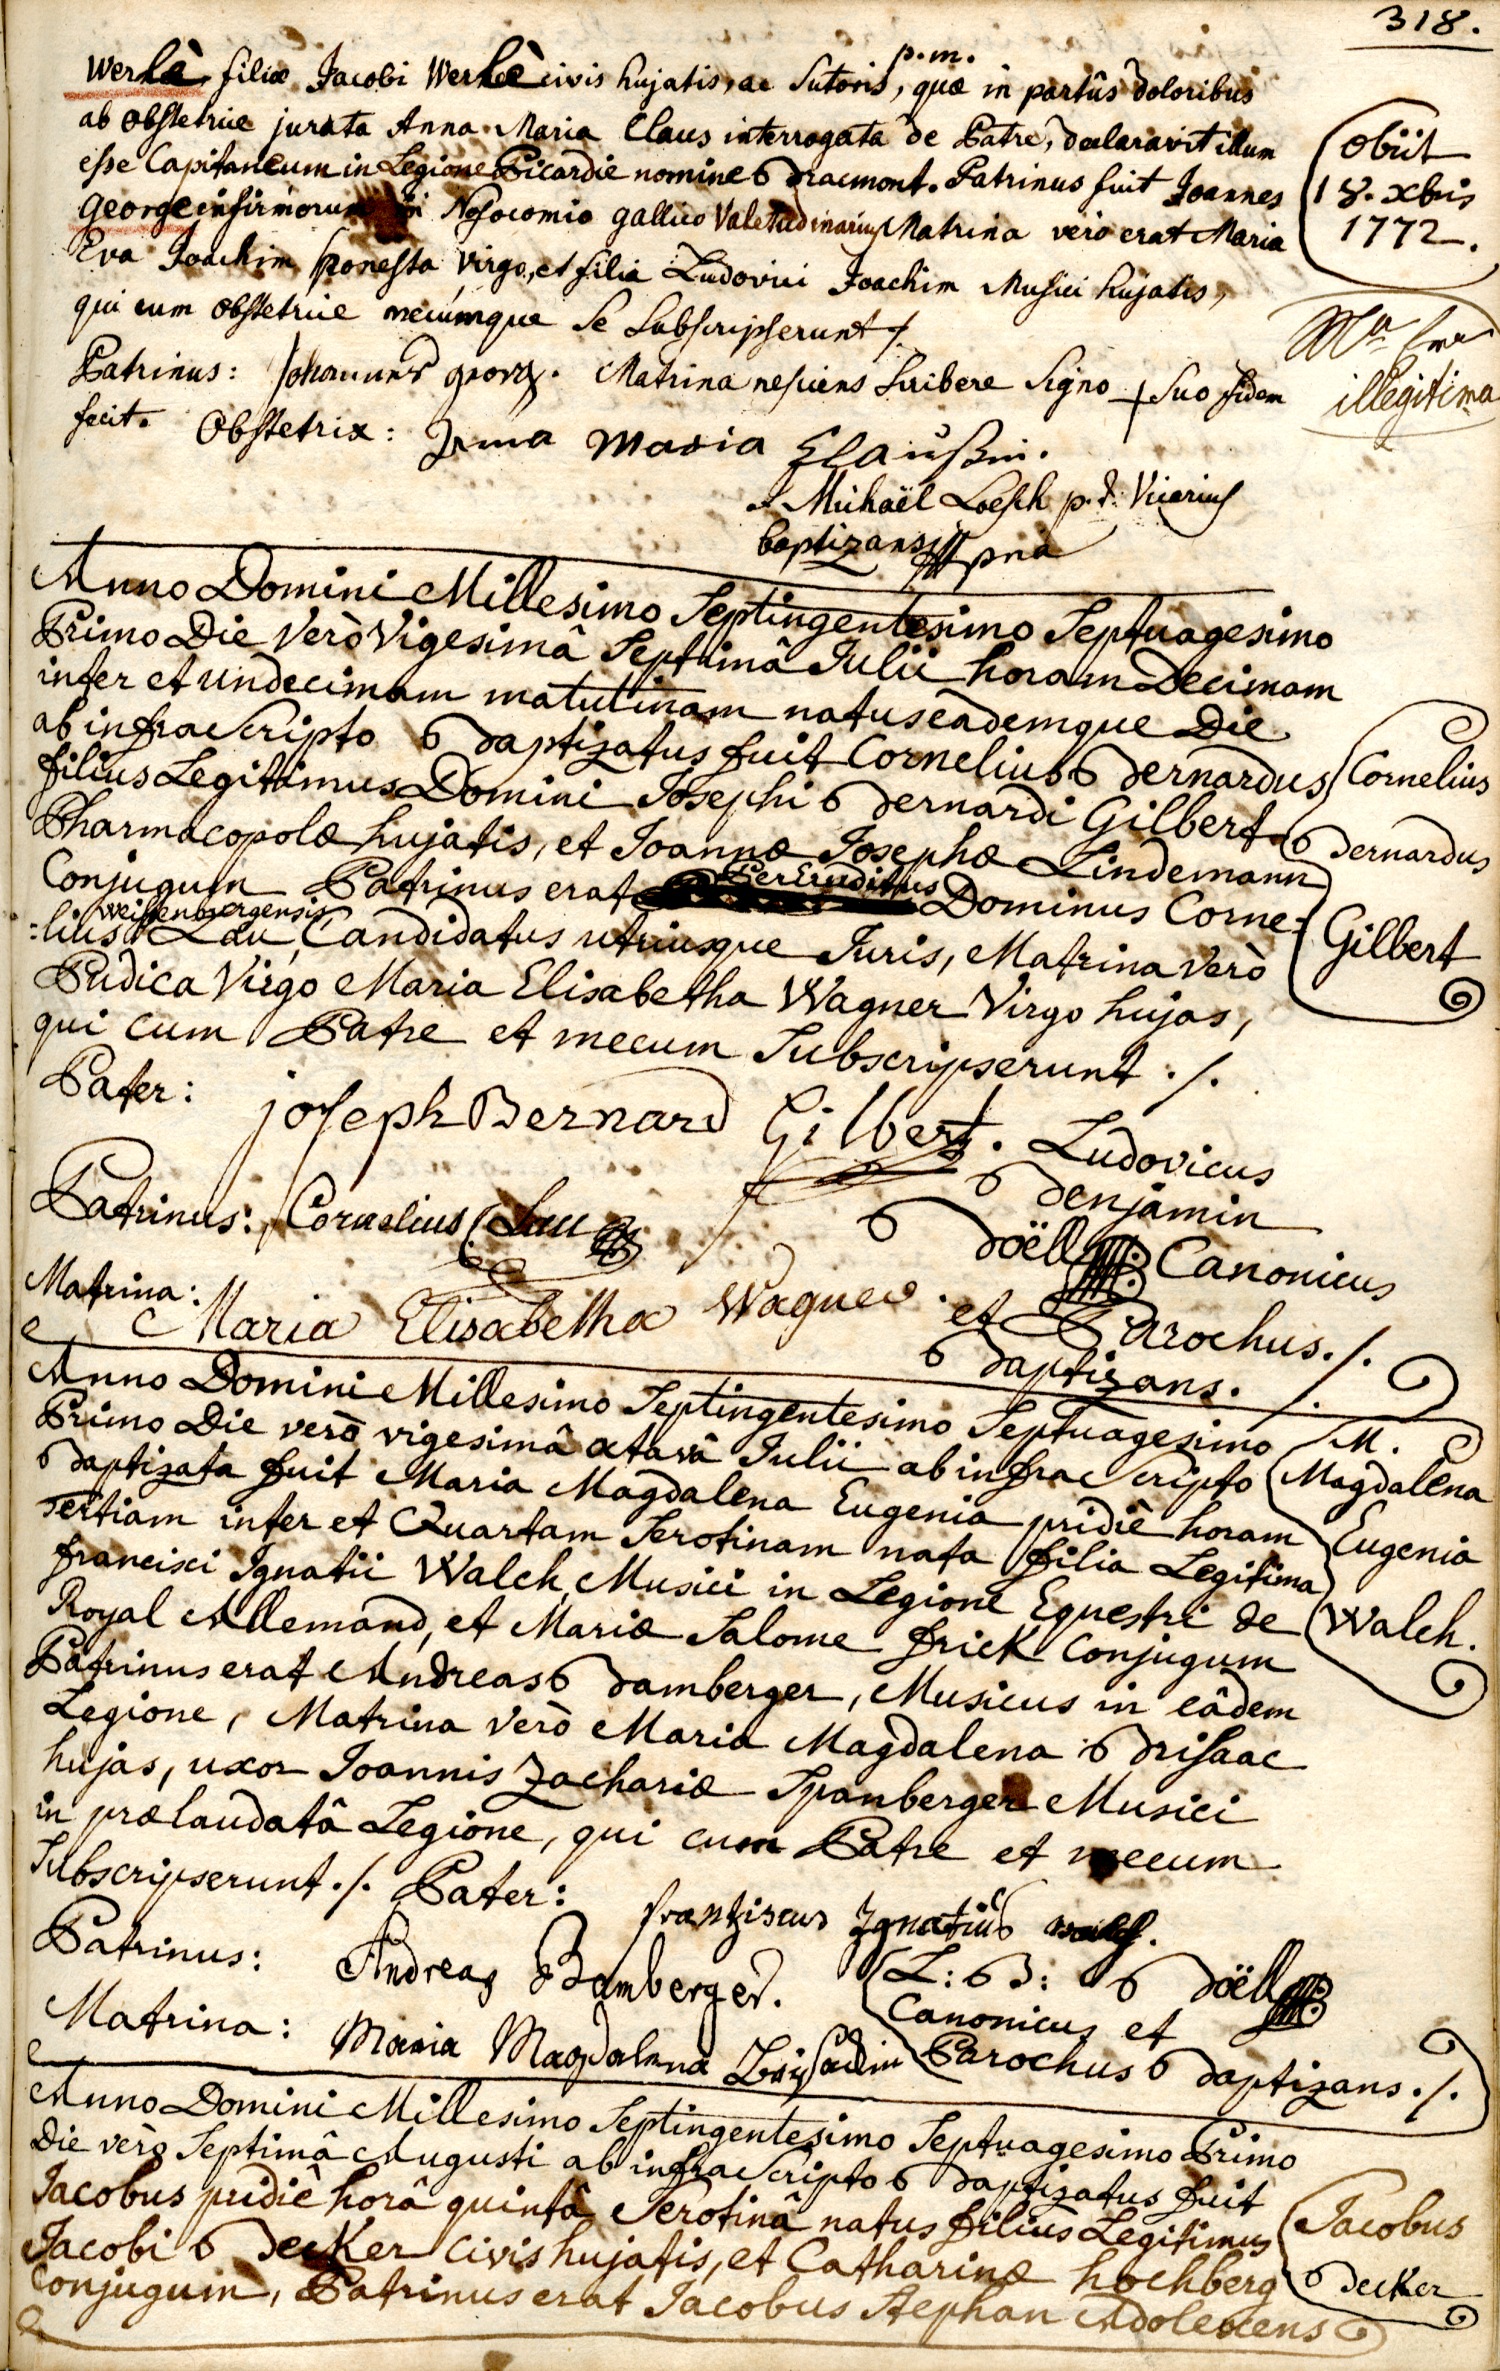 318.
p.m.
Werlè filiæ Jacobi Werlè civis hujatis, ac Sutoris, quæ in partûs doloribus
ab obstetrice jurata Anna Maria Claus interrogata de Patre, declaravit illum
esse Capitaneum in Legione Picardie nomine Bracmont. Patrinus fuit Joannes
George infirmorum in Nosocomio gallico Valetudinarius Matrina verò erat Maria
Eva Joachim honesta virgo, et filia Ludovici Joachim Musici hujatis,
qui cum obstetrice mecumque se Subscripserunt ./.
Patrinus: Johannes georg. Matrina nesciens Scribere Signo + Suo fidem
fecit. Obstetrix: Anna Maria Claußin.
Michaël Loesch p.t. Vicarius
baptizans mppria
obiit
18. xbris
1772.
illegitima
Anno Domini Millesimo Septingentesimo Septuagesimo
Primo Die Verò Vigesimâ Septimâ Julii horam Decimam
inter et undecimam matutinam natus eademque Die
ab infra Scripto Baptizatus fuit Cornelius Bernardus
filius Legitimus Domini Josephi Bernardi Gilbert
Pharmacopolæ hujatis, et Joannæ Josephæ Lindemann
Conjugum Patrinus erat PerEruditus Dominus Corne=
=lius Lau weissenburgensis, Candidatus utriusque Juris, Matrina Verò
Pudica Virgo Maria Elisabetha Wagner Virgo hujas,
qui cum Patre et mecum Subscripserunt ./.
Cornelius
Bernardus
Gilbert
Pater: joseph Bernard Gilbert.
Ludovicus
Benjamin
Patrinus: Cornelius Lau
Boëll Canonicus
Matrina: Maria Elisabetha Wagner.
et Parochus ./.
Baptizans.
Anno Domini Millesimo Septingentesimo Septuagesimo
Primo Die verò vigesimâ octavâ Julii ab infra Scripto
Baptizata fuit Maria Magdalena Eugenia pridiè horam
Tertiam inter et Quartam Serotinam nata filia Legitima
francisci Ignatii Walch, Musici in Legione Equestri de
Royal Allemand, et Mariæ Salome frick Conjugum
Patrinus erat Andreas Bamberger, Musicus in eâdem
Legione, Matrina Verò Maria Magdalena Brisaac
hujas, uxor Joannis Zachariæ Spanberger Musici
in prælaudatâ Legione, qui cum Patre et mecum
Subscripserunt ./. Pater: frantziscus Ignatius walch.
M.
Magdalena
Eugenia
Walch.
Patrinus: Andreas Bamberger.
L: B: Boëll
Canonicus et
Matrina: Maria Magdalena Brisackin
Parochus Baptizans ./.
Anno Domini Millesimo Septingentesimo Septuagesimo Primo
Die verò Septimâ Augusti ab infra Scripto Baptizatus fuit
Jacobus pridiè horâ quintâ Serotinâ natus filius Legitimus
Jacobi Becker Civis hujatis, et Catharinæ hochberg
Conjugum, Patrinus erat Jacobus Stephan Adolescens
Jacobus
Becker